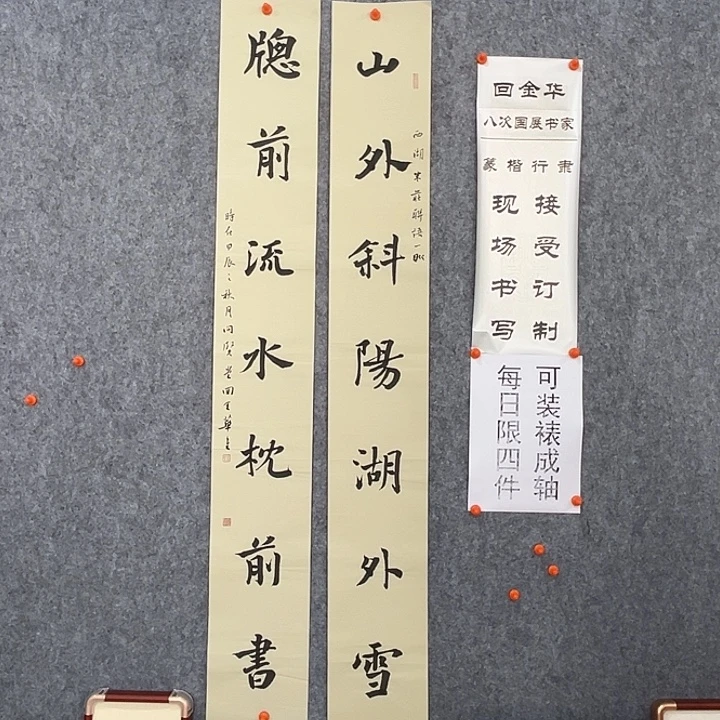 回金华
八次国展书家
篆楷行隶
接受订制
现场书写
可装裱成轴
每日限四件
山外斜陽湖外雪
西湖朱莊聯語一
牕前流水枕前書
時在甲辰之秋月问賢堂回金華